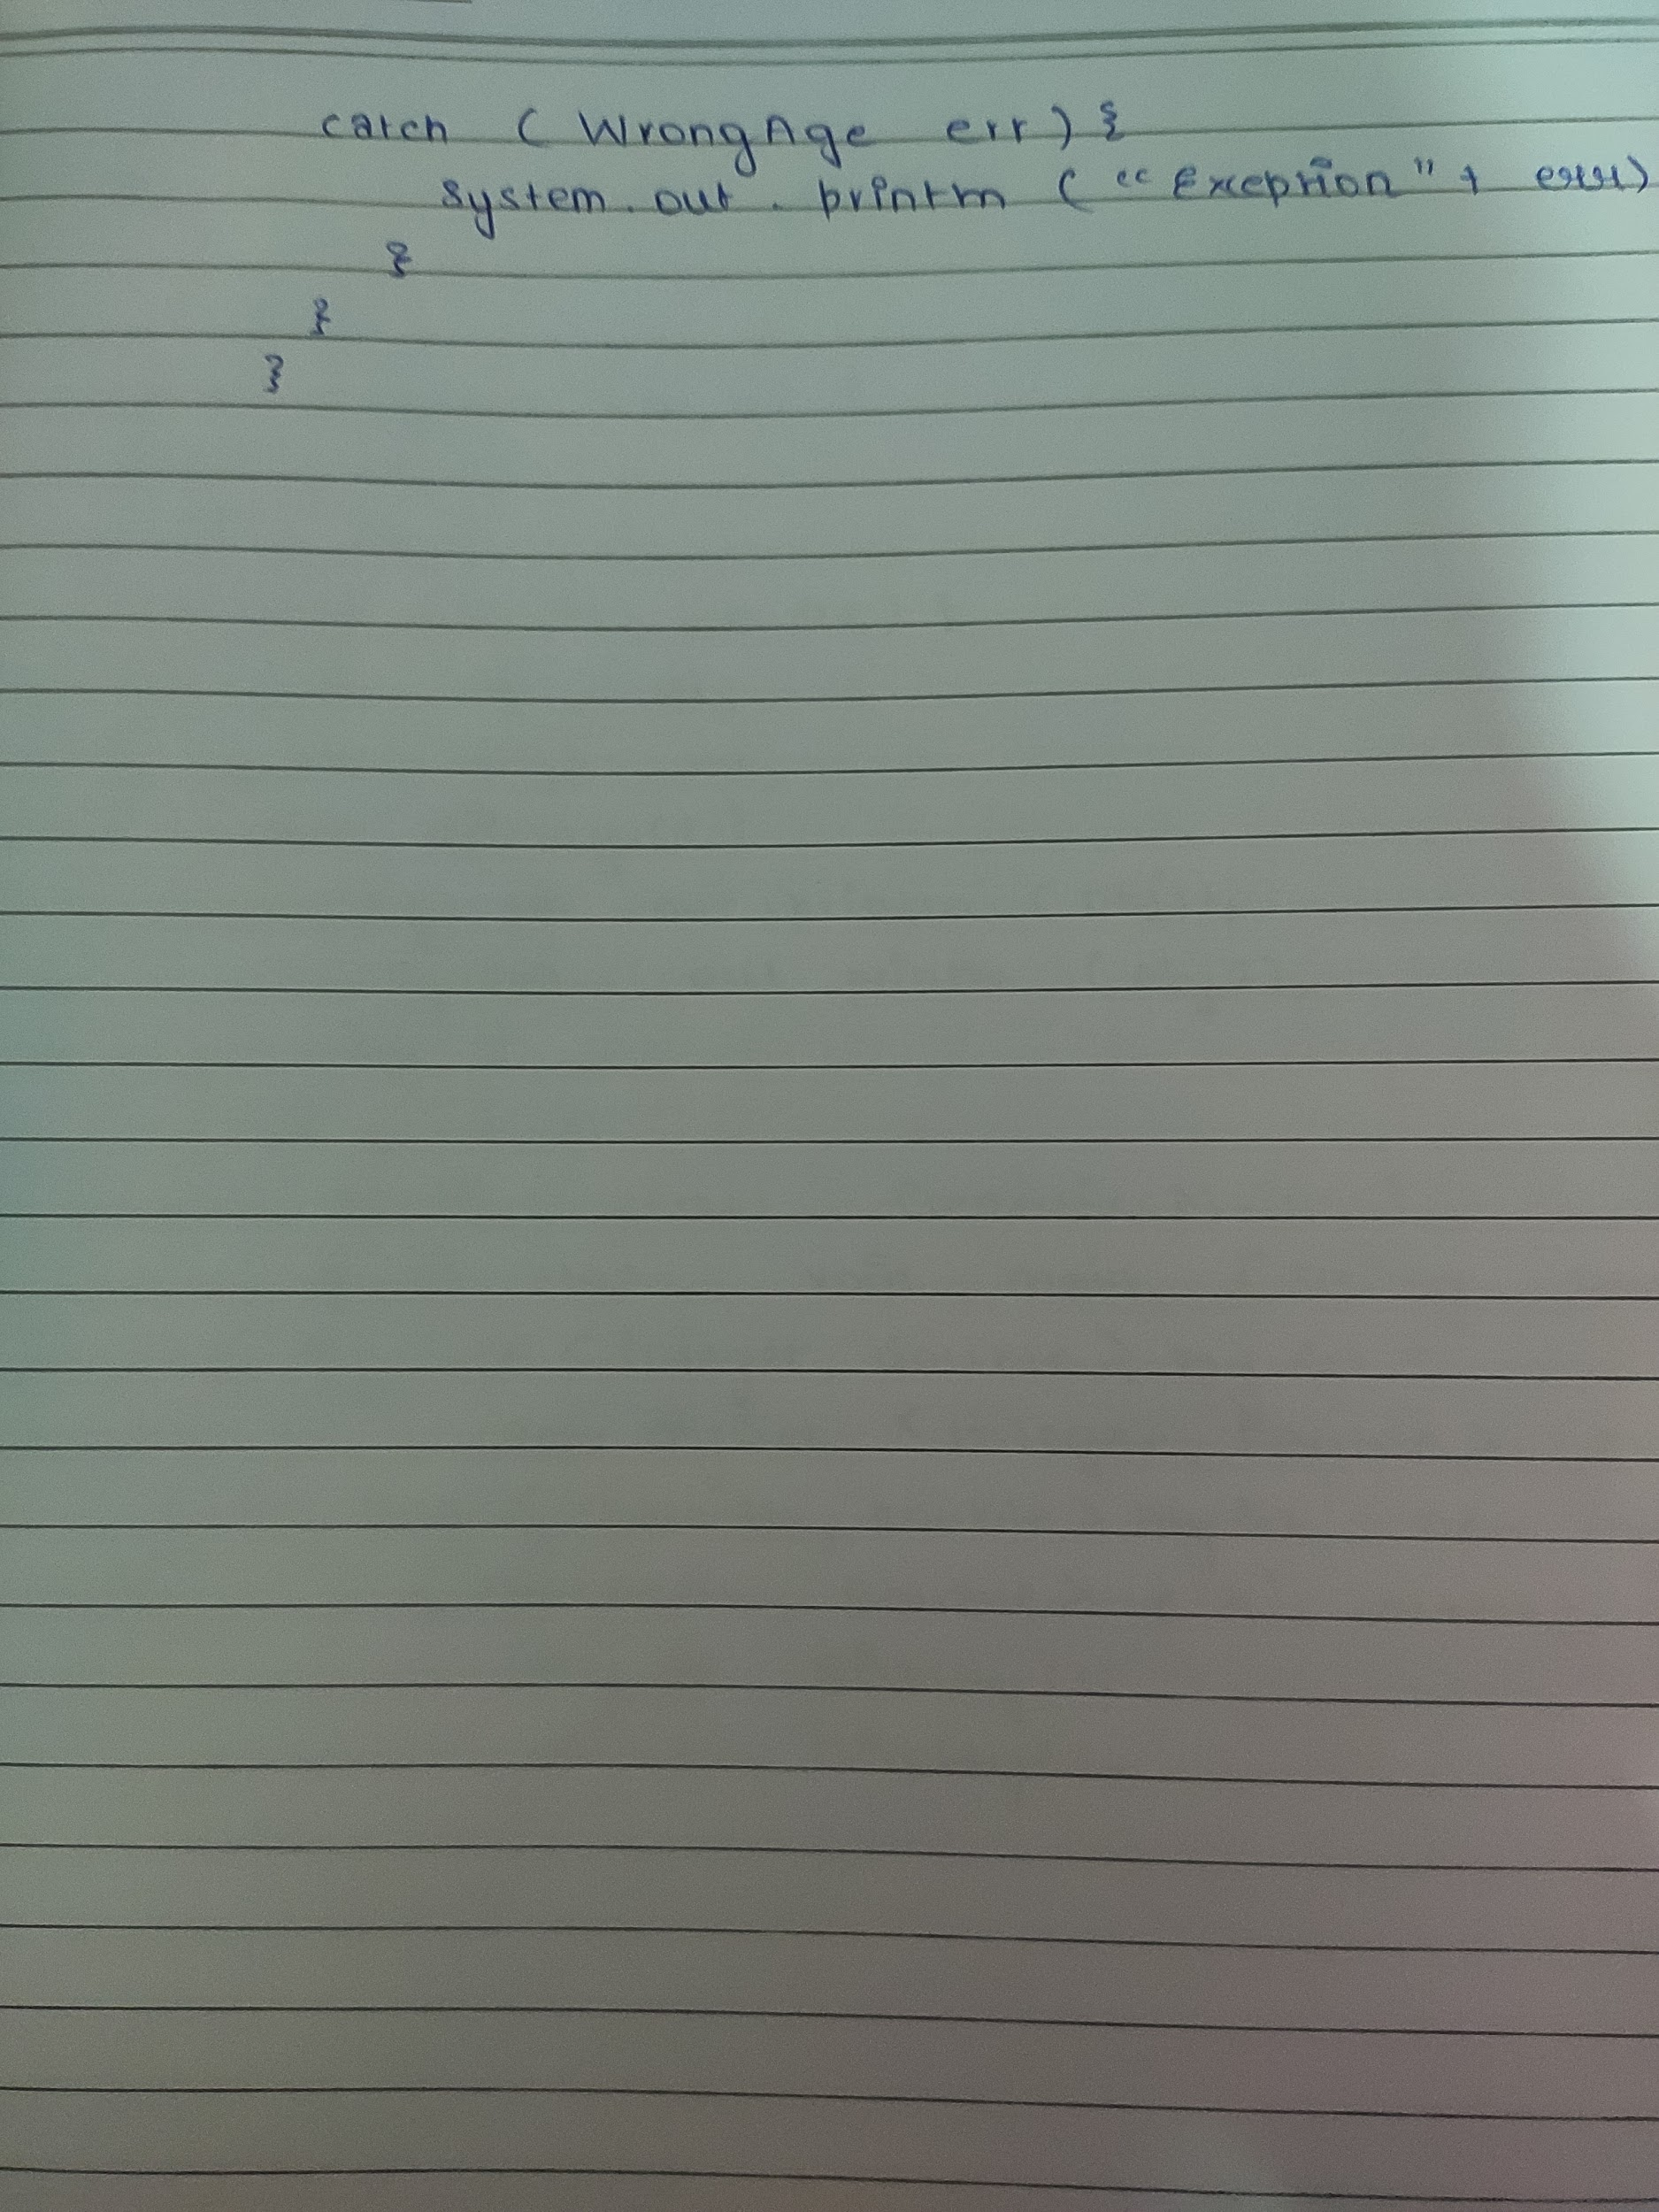 catch ( WrongAge err) {
System. out . println ( "Exception" + err)
}
}
}